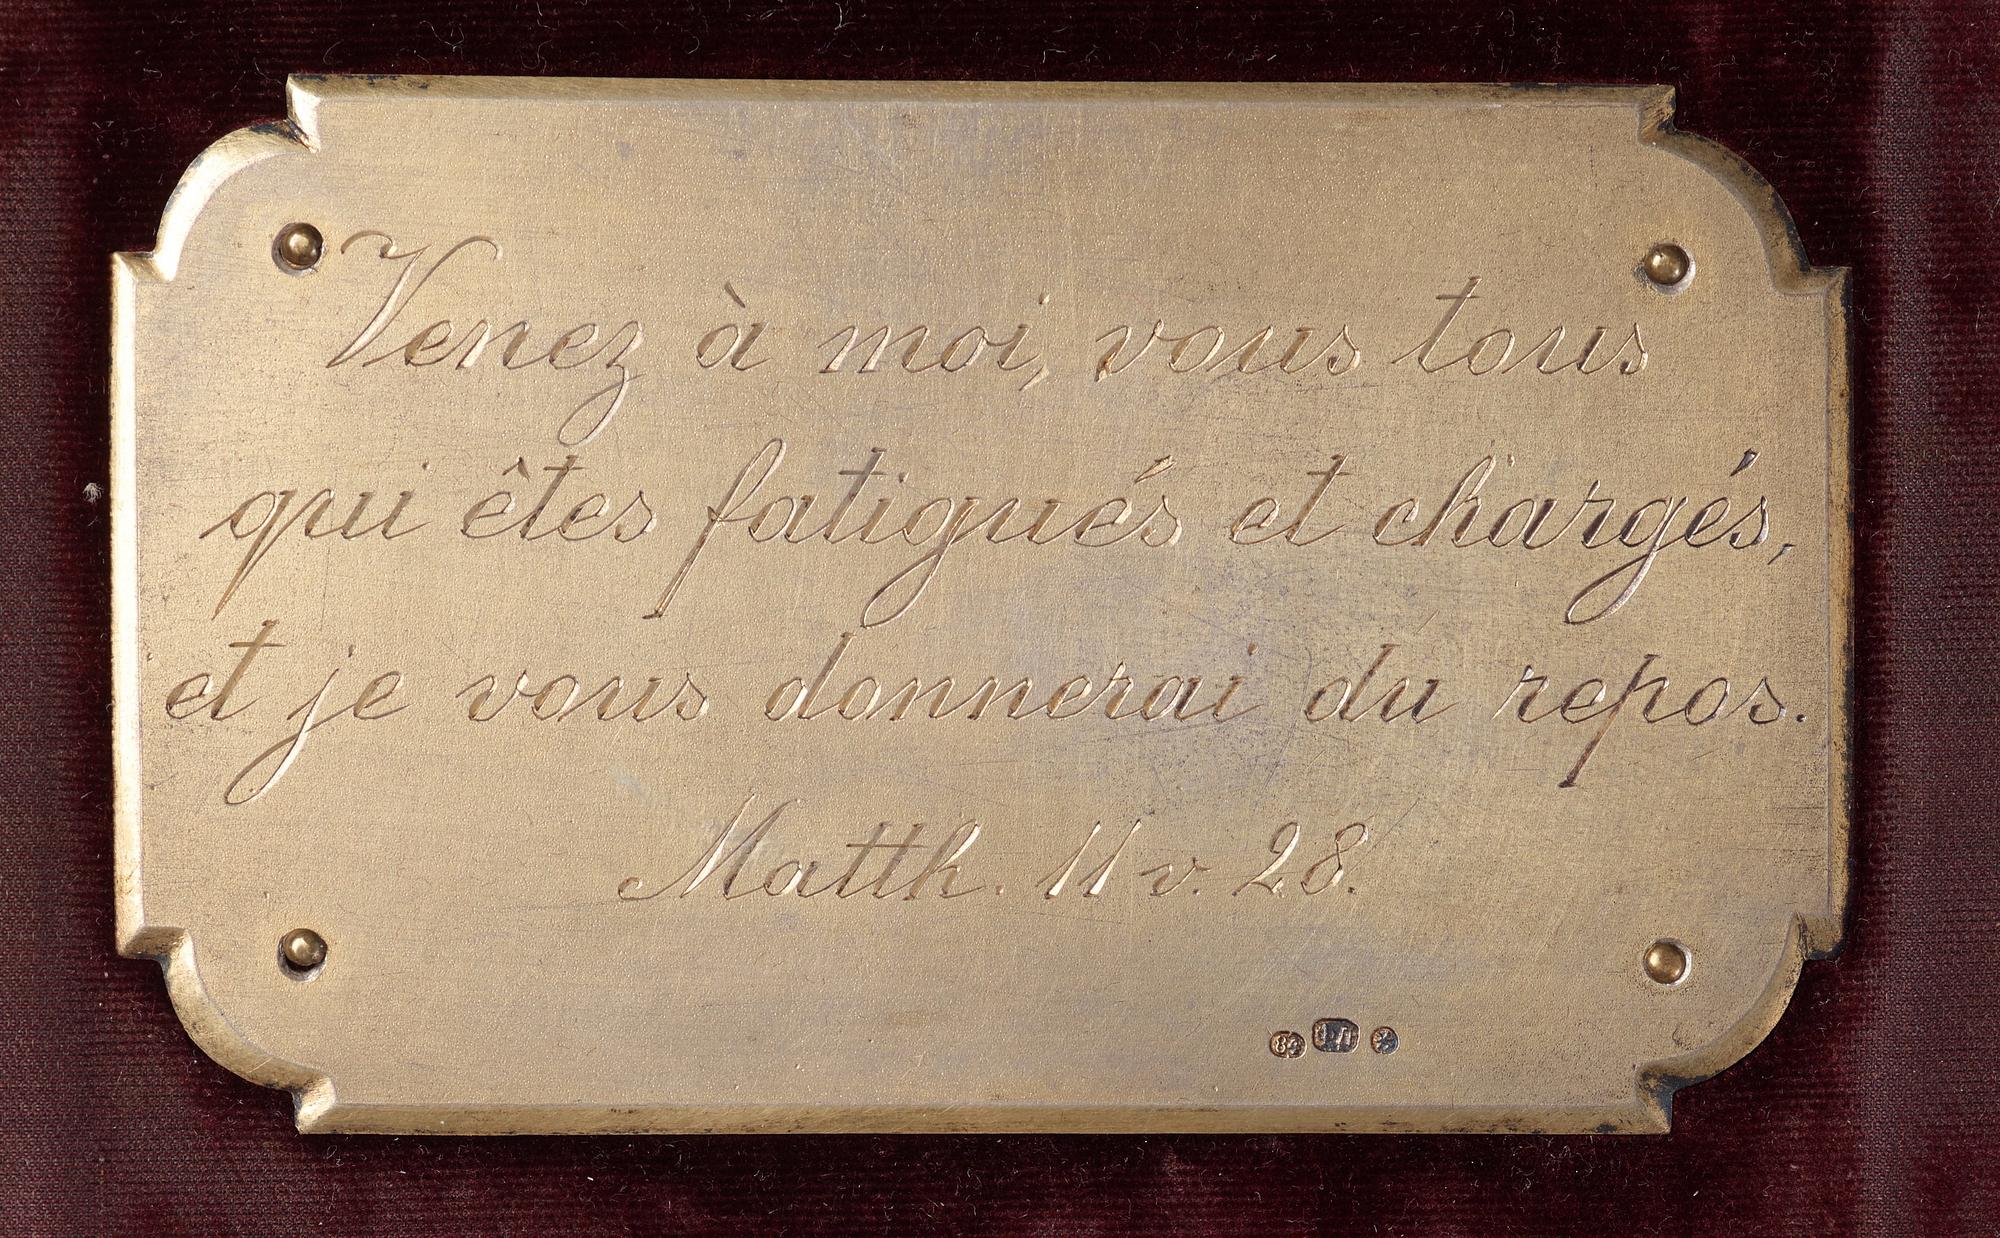 Venez à moi, vous tous
qui êtes fatigués et chargés,
et je vous donnerai du repos.
Matth. 11 v. 28.